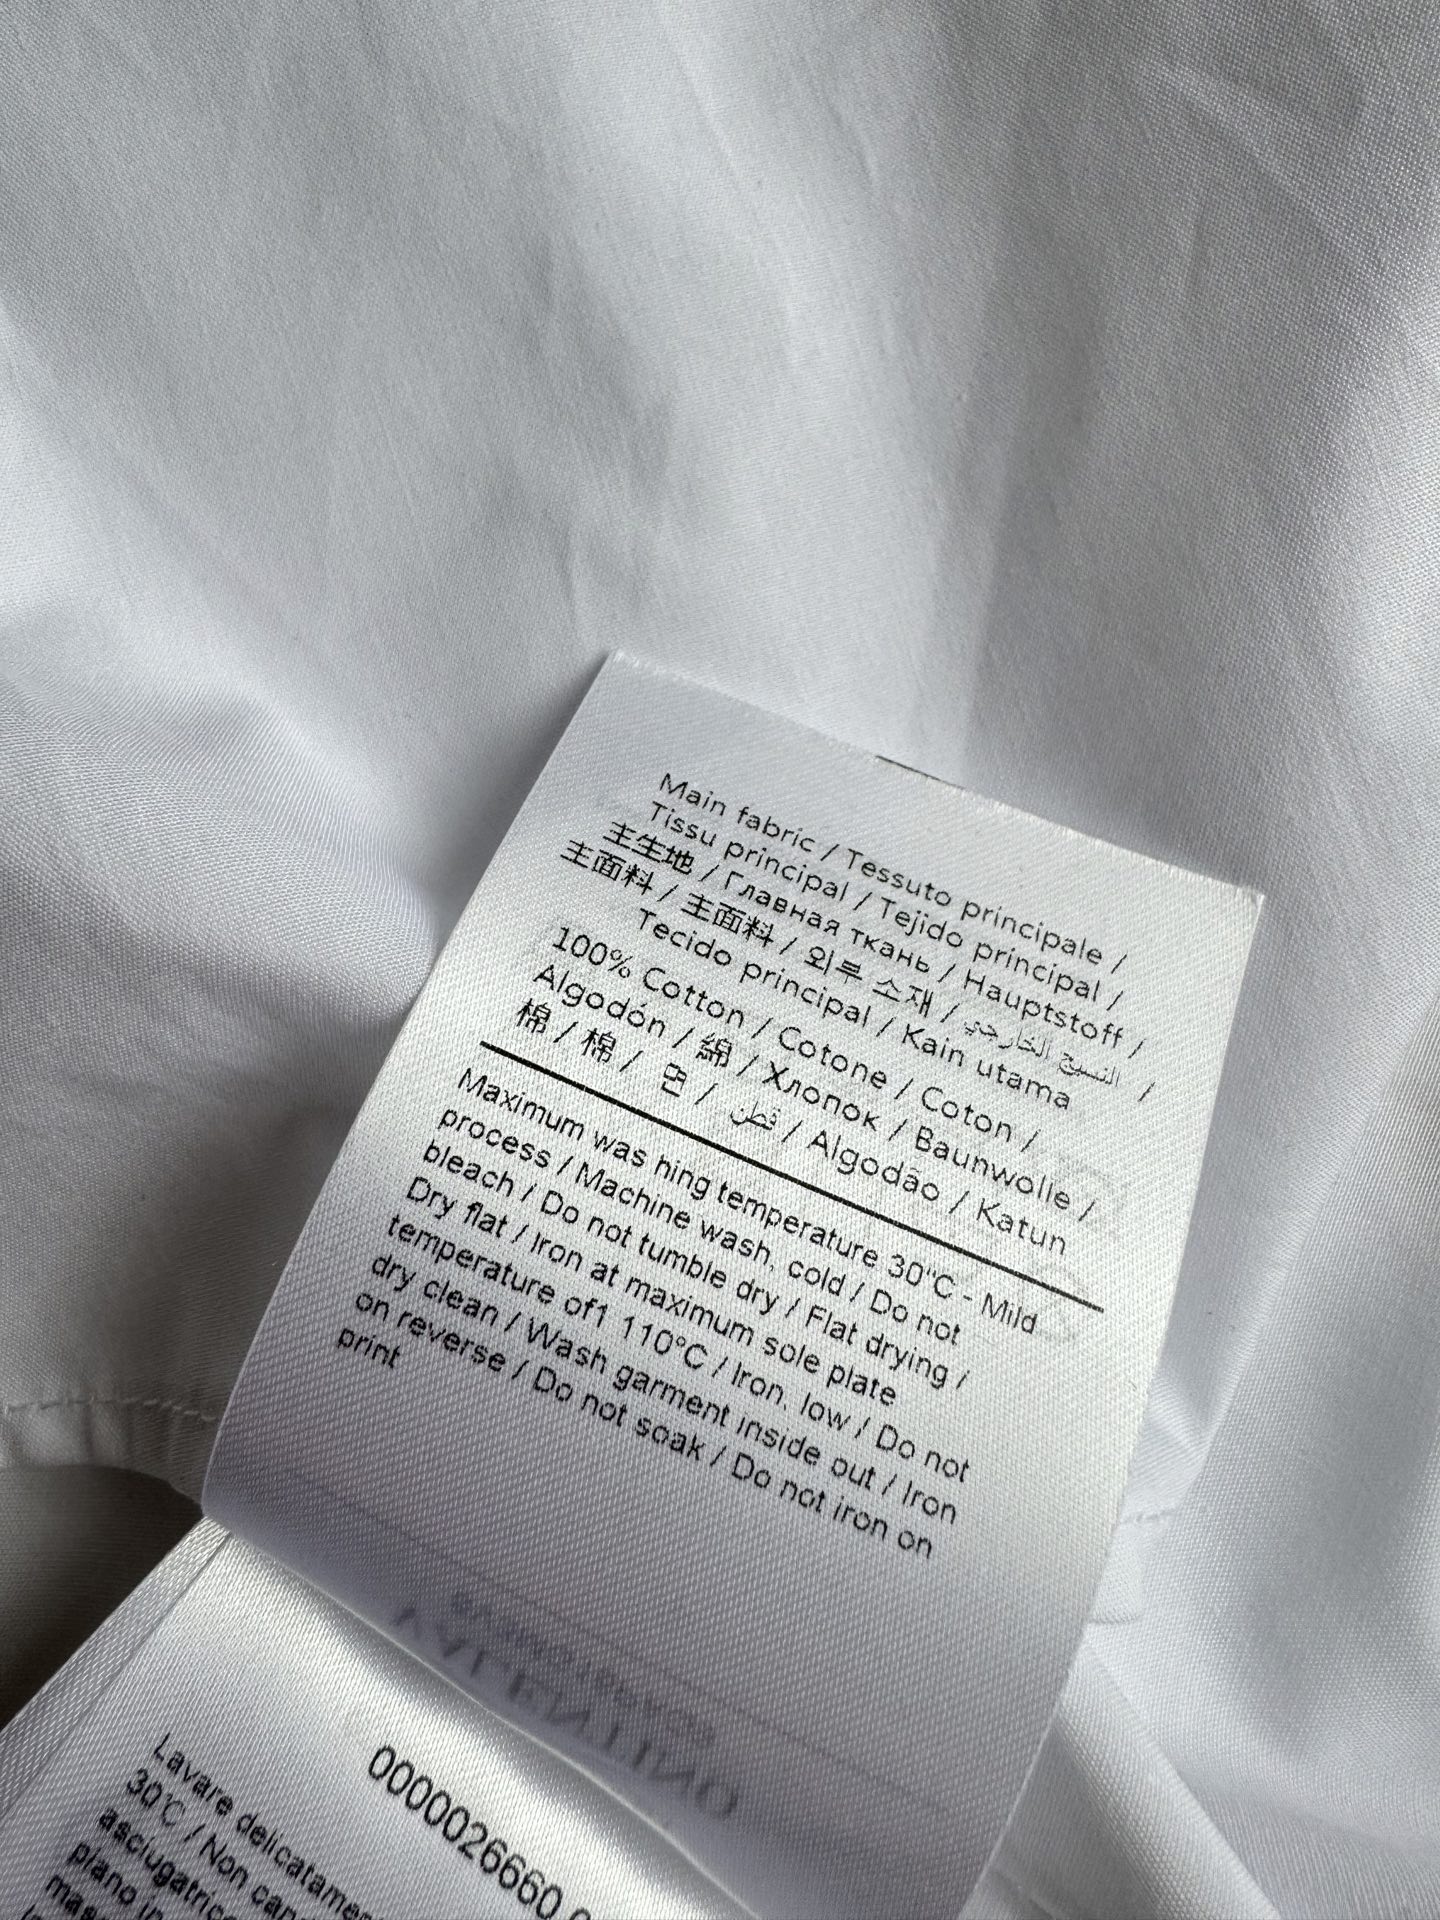 Main fabric / Tessuto principale /
Tissu principal / Tejido principal /
主生地 / Главная ткань / Hauptstoff /
主面料 / 主面料 / 외부 소재 / النسيج الخارجي /
Tecido principal / Kain utama
100% Cotton / Cotone / Coton /
Algodón / 綿 / Хлопок / Baunwolle /
棉 / 棉 / 면 / قطن / Algodão / Katun
Maximum was hing temperature 30°C - Mild
process / Machine wash, cold / Do not
bleach / Do not tumble dry / Flat drying /
Dry flat / Iron at maximum sole plate
temperature of1 110°C / Iron, low / Do not
dry clean / Wash garment inside out / Iron
on reverse / Do not soak / Do not iron on
print
VALENTINO
0000026660
Lavare delicatamen
30°C / Non cand
asciugatrice
plano in